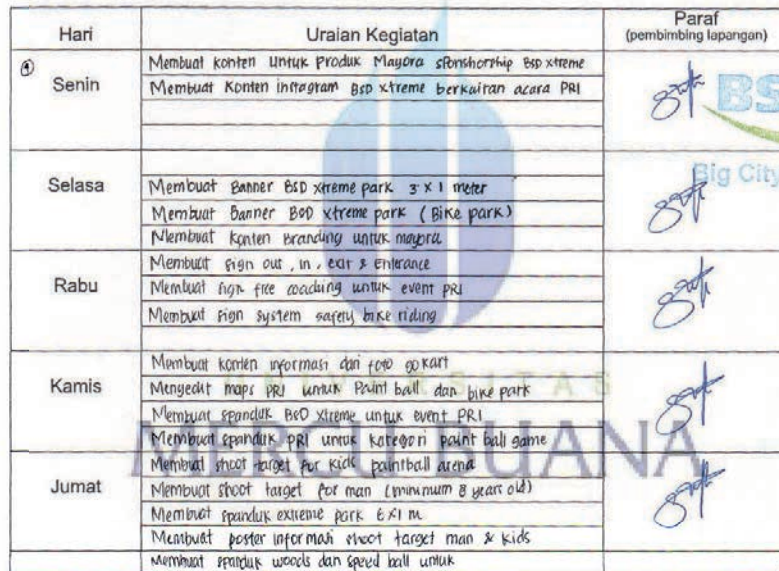 Hari Uraian Kegiatan Paraf
(pembimbing lapangan)
① Senin
Membuat konten untuk Produk Mayora sponshorship BSD xtreme
Membuat Konten instagram BSD xtreme berkaitan acara PRI
BS
Big City
Selasa
Membuat Banner BSD xtreme park 3 x 1 meter
Membuat Banner BSD xtreme park (Bike park)
Membuat konten Branding untuk mayora
Rabu
Membuat sign out, in, exit & enterance
Membuat sign free coaching untuk event PRI
Membuat sign system safety bike riding
Kamis
Membuat konten informasi dan foto gokart
Mengedit maps PRI untuk Paint ball dan bike park
Membuat spanduk BSD Xtreme untuk event PRI
Membuat spanduk PRI untuk kategori paint ball game
UNIVERSITAS
MERCU BUANA
Jumat
Membuat shoot target for kids paintball arena
Membuat shoot target for man (minimum 8 years old)
Membuat spanduk extreme park 6x1 m
Membuat poster informasi shoot target man & kids
Membuat spanduk woods dan speed ball untuk